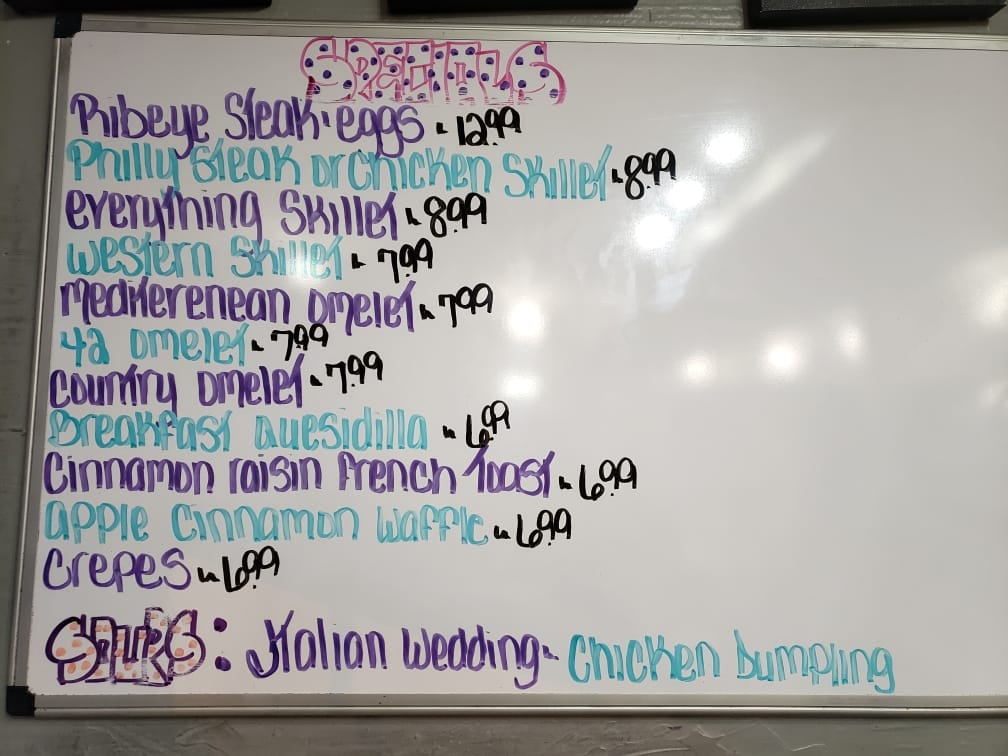 Specials
Ribeye Steak · eggs - 12.99
Philly Steak or Chicken Skillet - 8.99
everything Skillet - 8.99
western Skillet - 7.99
Mediterenean omelet - 7.99
42 omelet - 7.99
country omelet - 7.99
Breakfast Quesidilla - 6.99
Cinnamon raisin french toast - 6.99
apple Cinnamon waffle - 6.99
Crepes - 6.99
Soups: Italian wedding - Chicken Dumpling